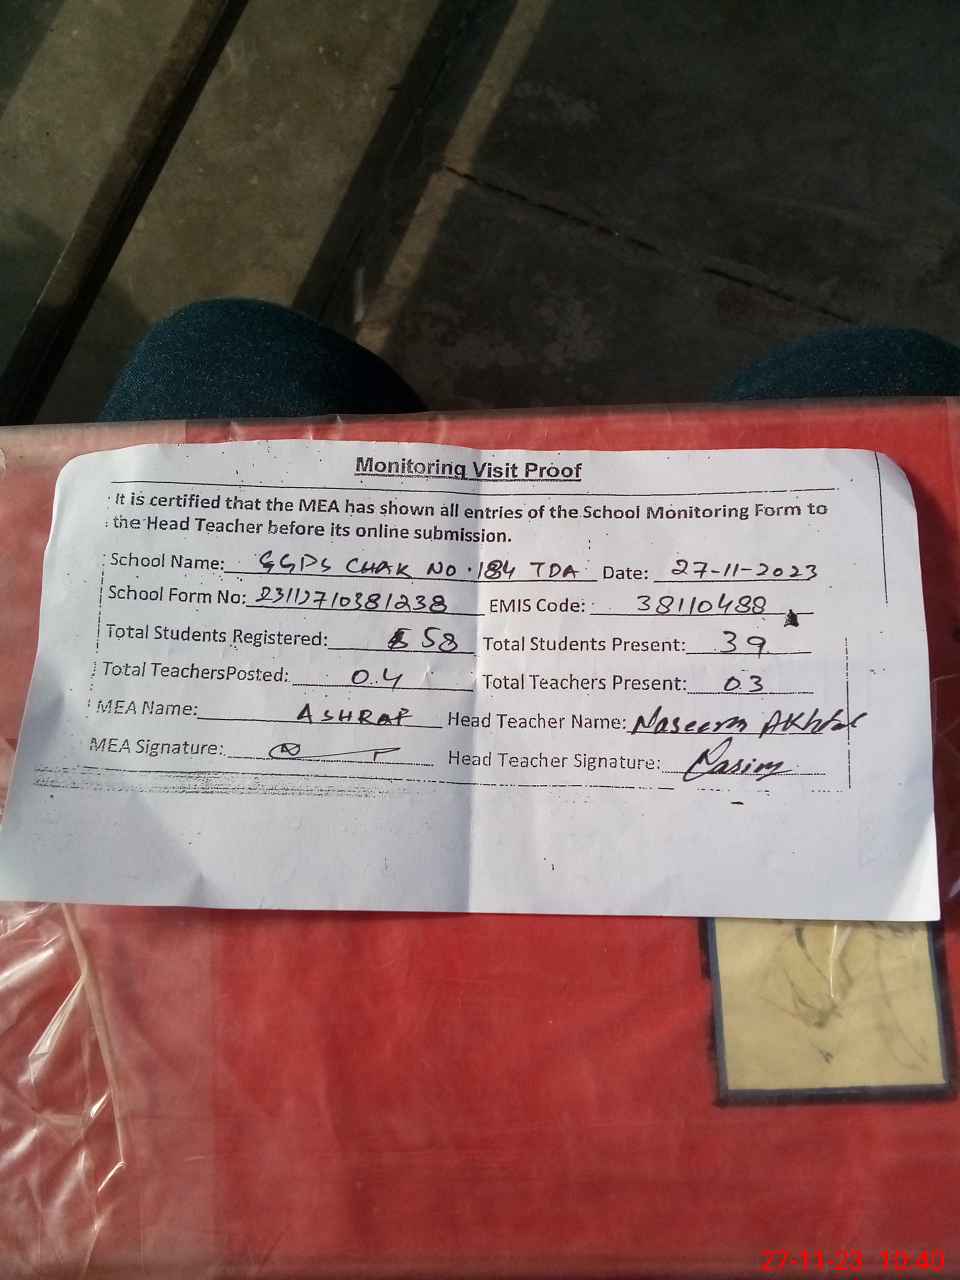 Monitoring Visit Proof
It is certified that the MEA has shown all entries of the School Monitoring Form to
the Head Teacher before its online submission.
School Name: GGPS CHAK NO. 184 TDA Date: 27-11-2023
School Form No: EMIS Code: 38110488
Total Students Registered: 58 Total Students Present: 39
Total TeachersPosted: 04 Total Teachers Present: 03
MEA Name: ASHRAF Head Teacher Name: Naseem Akhtar
MEA Signature: Head Teacher Signature: Nasim
27-11-23 10:40